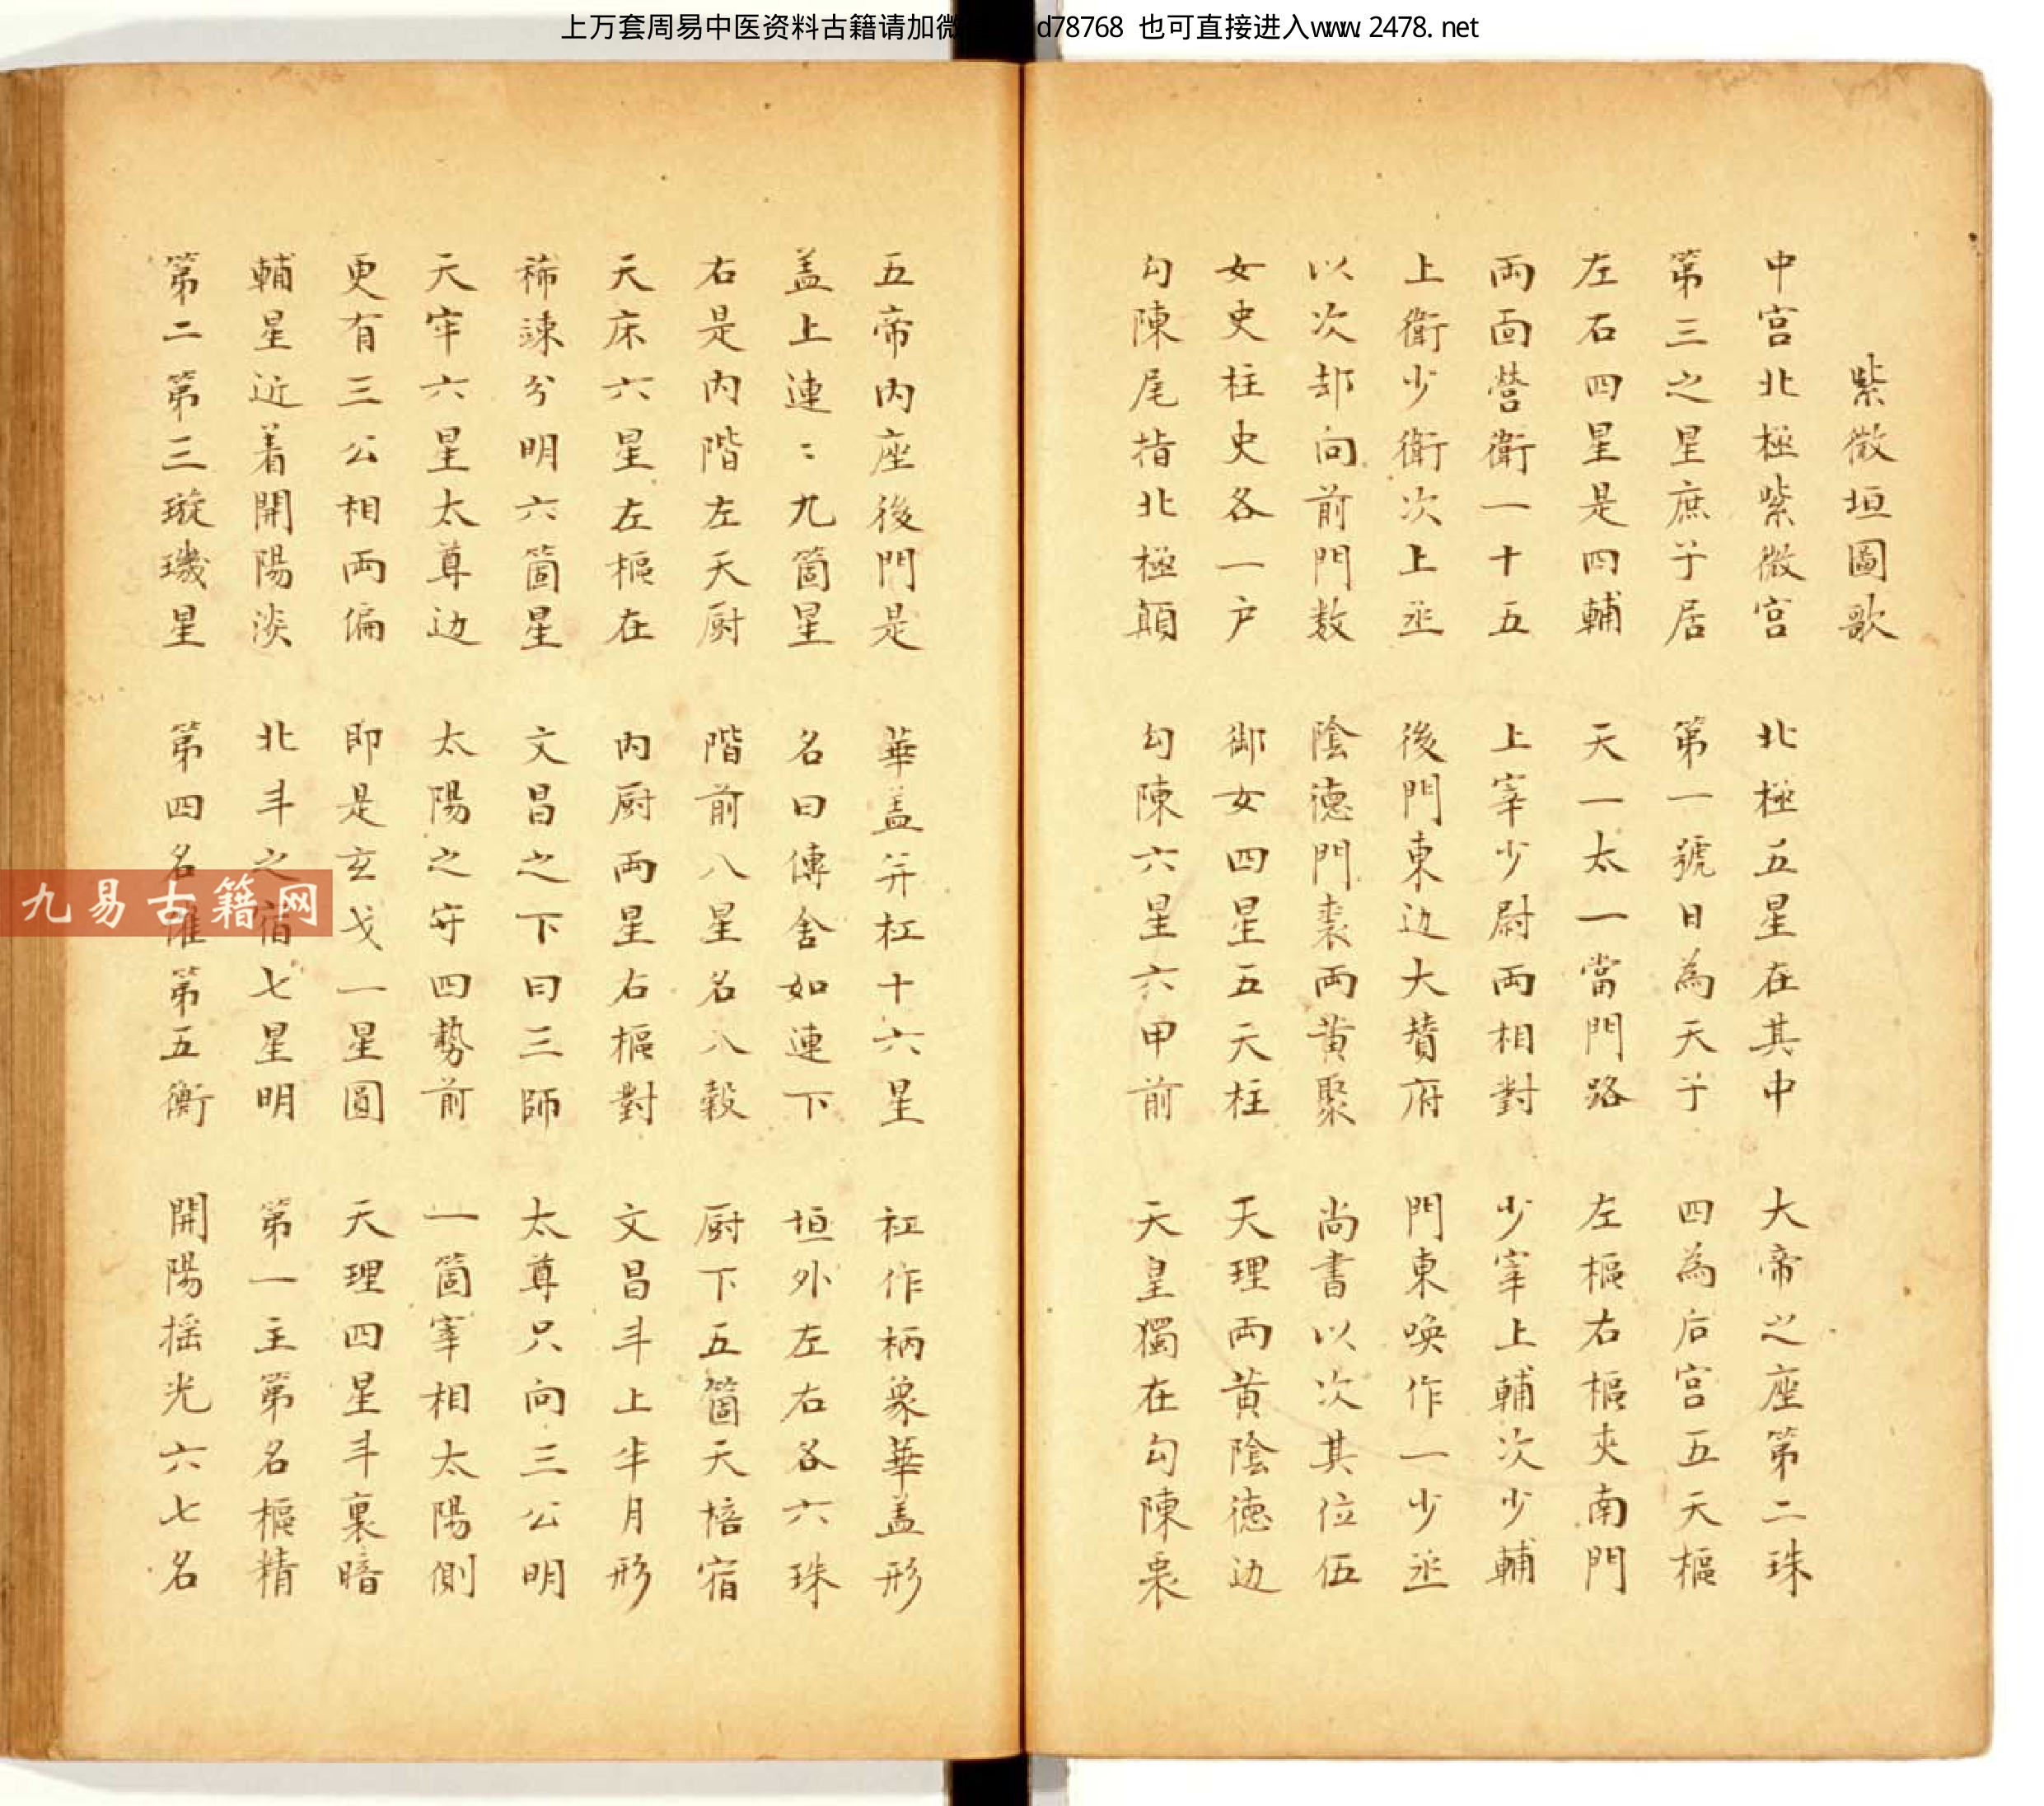 上万套周易中医资料古籍请加微 d78768 也可直接进入www.2478.net
紫微垣圖歌
中宫北極紫微宫 北極五星在其中 大帝之座第二珠
第三之星庶子居 第一號日為天子 四為后宫五天樞
左右四星是四輔 天一太一當門路 左樞右樞夾南門
兩面營衛一十五 上宰少尉兩相對 少宰上輔次少輔
上衛少衛次上丞 後門東边大賛府 門東喚作一少丞
以次却向前門数 陰德門裏兩黄聚 尚書以次其位伍
女史柱史各一户 御女四星五天柱 天理兩黄陰德边
勾陳尾指北極顛 勾陳六星六甲前 天皇獨在勾陳裏
五帝内座後門是 華盖并杠十六星 杠作柄象華盖形
盖上連〻九箇星 名曰傳舍如連下 垣外左右各六珠
右是内階左天厨 階前八星名八穀 厨下五箇天棓宿
天床六星左樞在 内厨兩星右樞對 文昌斗上半月形
稀疎分明六箇星 文昌之下曰三師 太尊只向三公明
天牢六星太尊边 太陽之守四勢前 一箇宰相太陽側
更有三公相两偏 即是玄戈一星圓 天理四星斗裏暗
輔星近着開陽淡 北斗之宿七星明 第一主第名樞精
第二第三璇璣星 第四名權第五衡 開陽摇光六七名
九易古籍网